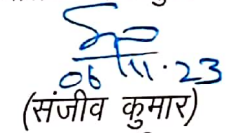 06/11.23
(संजीव कुमार)